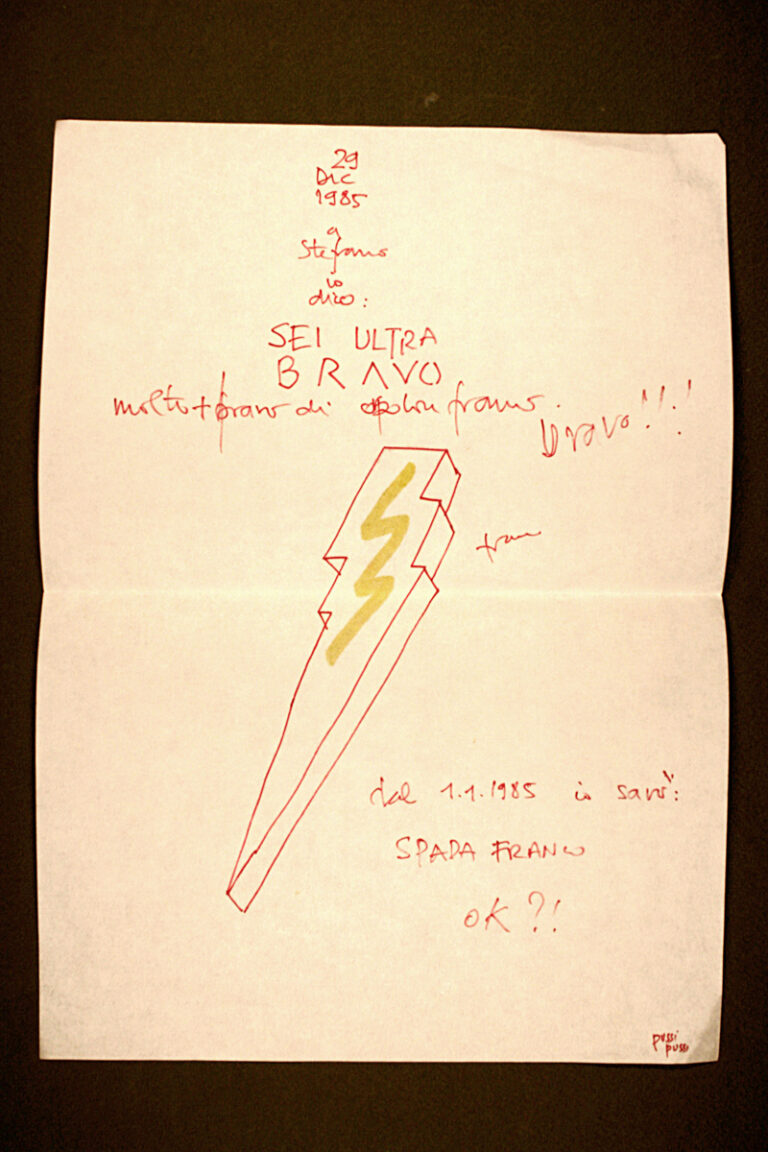 29
DIC
1985
a
Stefano
io
dico:
SEI ULTRA
BRAVO
molto + bravo di franco.
bravo!!!
dal 1.1.1985 io sarò:
SPADA FRANCO
OK?!
pussi
pussi